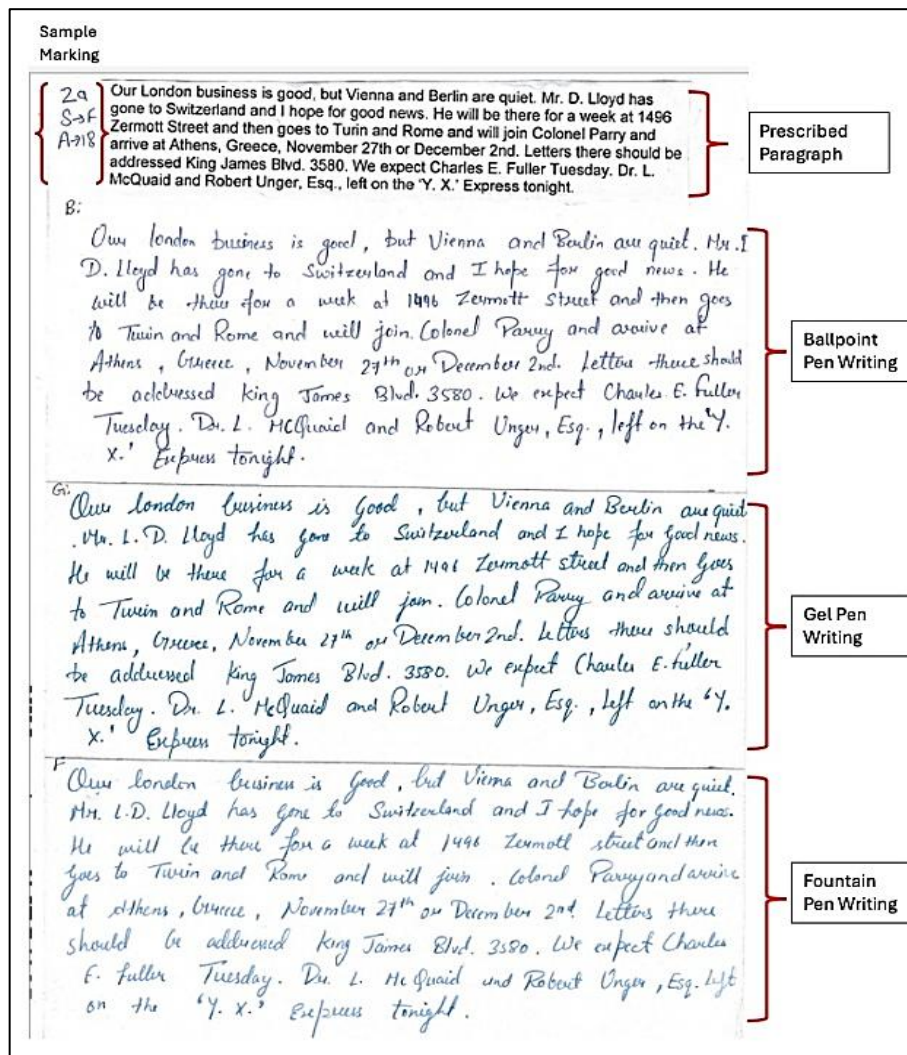 Sample
Marking
2a
S→F
A→18
Our London business is good, but Vienna and Berlin are quiet. Mr. D. Lloyd has
gone to Switzerland and I hope for good news. He will be there for a week at 1496
Zermott Street and then goes to Turin and Rome and will join Colonel Parry and
arrive at Athens, Greece, November 27th or December 2nd. Letters there should be
addressed King James Blvd. 3580. We expect Charles E. Fuller Tuesday. Dr. L.
McQuaid and Robert Unger, Esq., left on the 'Y. X.' Express tonight.
Prescribed
Paragraph
B:
Our london business is good, but Vienna and Berlin are quiet. Mr.
D. Lloyd has gone to Switzerland and I hope for good news. He
will be there for a week at 1496 Zermott Street and then goes
to Turin and Rome and will join. Colonel Parry and arrive at
Athens, Greece, November 27th or December 2nd. Letters there should
be addressed King James Blvd. 3580. We expect Charles E. Fuller
Tuesday. Dr. L. McQuaid and Robert Unger, Esq., left on the 'Y.
X.' Express tonight.
Ballpoint
Pen Writing
G:
Our london business is Good, but Vienna and Berlin are quiet
. Mr. L. D. Lloyd has gone to Switzerland and I hope for Good news.
He will be there for a week at 1496 Zermott street and then Goes
to Turin and Rome and will join. Colonel Parry and arrive at
Athens, Greece, November 27th or December 2nd. Letters there should
be addressed King James Blvd. 3580. We expect Charles E. Fuller
Tuesday. Dr. L. McQuaid and Robert Unger, Esq., left on the 'Y.
X.' Express tonight.
Gel Pen
Writing
F
Our london business is Good, but Vienna and Berlin are quiet.
Mr. L.D. Lloyd has gone to Switzerland and I hope for Good news.
He will be there for a week at 1496 Zermott street and then
Goes to Turin and Rome and will join. Colonel Parry and arrive
at Athens, Greece, November 27th or December 2nd. Letters there
should be addressed King James Blvd. 3580. We expect Charles
E. Fuller Tuesday. Dr. L. McQuaid and Robert Unger, Esq. left
on the 'Y. X.' Express tonight.
Fountain
Pen Writing